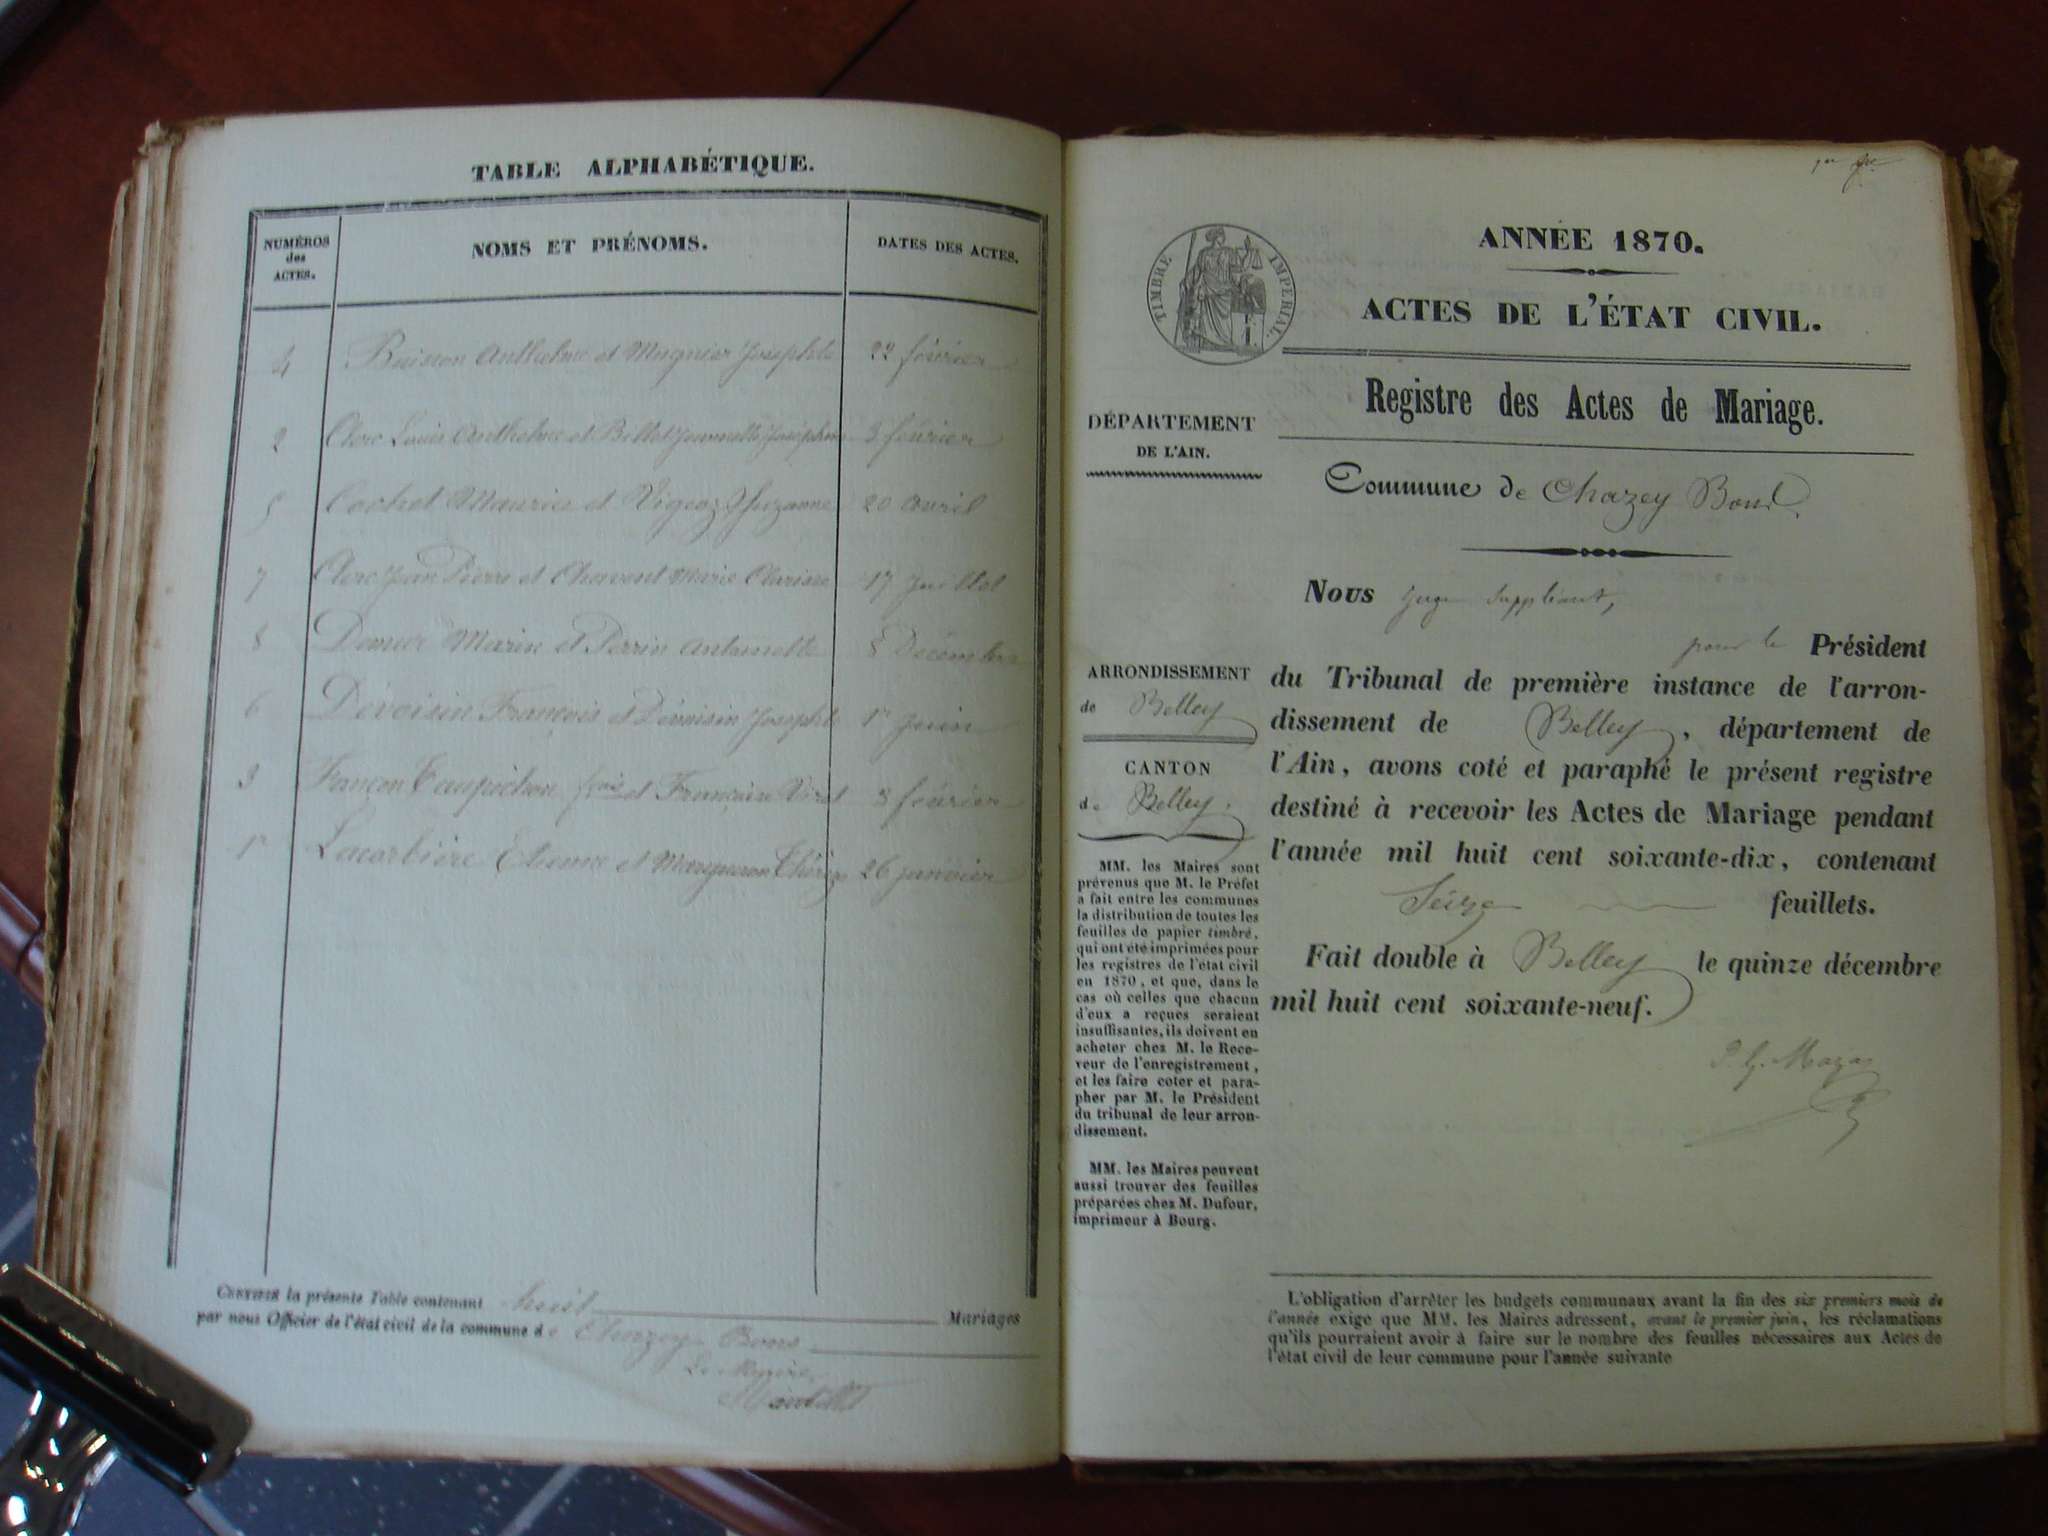 TABLE ALPHABÉTIQUE.
NUMÉROS des ACTES. NOMS ET PRÉNOMS. DATES DES ACTES.
4 Buisson Anthelme et Mugnier Josephte 22 février
2 Clerc Louis Anthelme et Billet Jeannette Joséphine 3 février
5 Cochet Maurice et Suzanne 20 avril
7 Clerc Jean Pierre et Chavent Marie Clarisse 17 Juillet
8 Marin et Perrin Antoinette 8 Décembre
6 Dévoisin François et Dévoisin Josephte 1r juin
3 et Françoise 3 février
1r Etienne et Thérèse 26 janvier
CERTIFIÉE la présente Table contenant huit Mariages
par nous Officier de l'état civil de la commune de Chazey Bons
Le Maire
ANNÉE 1870.
TIMBRE IMPÉRIAL.
ACTES DE L'ÉTAT CIVIL.
Registre des Actes de Mariage.
DÉPARTEMENT
DE L'AIN.
Commune de Chazey Bons
Nous Juge Suppléant,
pour le Président
ARRONDISSEMENT
de Belley
CANTON
de Belley.
du Tribunal de première instance de l'arron-
dissement de Belley, département de
l'Ain, avons coté et paraphé le présent registre
destiné à recevoir les Actes de Mariage pendant
l'année mil huit cent soixante-dix, contenant
Seize feuillets.
Fait double à Belley le quinze décembre
mil huit cent soixante-neuf.
MM. les Maires sont
prévenus que M. le Préfet
a fait entre les communes
la distribution de toutes les
feuilles de papier timbré,
qui ont été imprimées pour
les registres de l'état civil
en 1870, et que, dans le
cas où celles que chacun
d'eux a reçues seraient
insuffisantes, ils doivent en
acheter chez M. le Rece-
veur de l'enregistrement,
et les faire coter et para-
pher par M. le Président
du tribunal de leur arron-
dissement.
MM. les Maires peuvent
aussi trouver des feuilles
préparées chez M. Dufour,
imprimeur à Bourg.
L'obligation d'arrêter les budgets communaux avant la fin des six premiers mois de
l'année exige que MM. les Maires adressent, avant le premier juin, les réclamations
qu'ils pourraient avoir à faire sur le nombre des feuilles nécessaires aux Actes de
l'état civil de leur commune pour l'année suivante